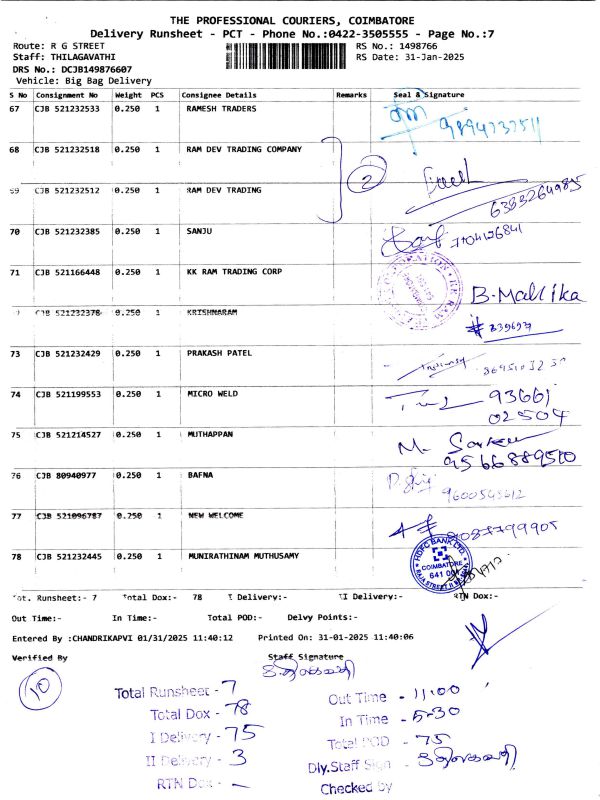 THE PROFESSIONAL COURIERS, COIMBATORE
Delivery Runsheet - PCT - Phone No.:0422-3505555 - Page No.:7
Route: R G STREET
RS No.: 1498766
Staff: THILAGAVATHI
RS Date: 31-Jan-2025
DRS No.: DCJB149876607
Vehicle: Big Bag Delivery
S No Consignment No Weight PCS Consignee Details Remarks Seal & Signature
67 CJB 521232533 0.250 1 RAMESH TRADERS
68 CJB 521232518 0.250 1 RAM DEV TRADING COMPANY
2
69 CJB 521232512 0.250 1 RAM DEV TRADING
6383264985
70 CJB 521232385 0.250 1 SANJU
7104176841
71 CJB 521166448 0.250 1 KK RAM TRADING CORP
B-Mallika
CJB 521232378 0.250 1 KRISHNARAM
73 CJB 521232429 0.250 1 PRAKASH PATEL
74 CJB 521199553 0.250 1 MICRO WELD
93661
02504
75 CJB 521214527 0.250 1 MUTHAPPAN
M.
9566889510
76 CJB 80940977 0.250 1 BAFNA
9600548612
77 CJB 521096787 0.250 1 NEW WELCOME
78 CJB 521232445 0.250 1 MUNIRATHINAM MUTHUSAMY
HDFC BANK LTD.
COIMBATORE
641 001
Tot. Runsheet:- 7 Total Dox:- 78 I Delivery:- II Delivery:- RTN Dox:-
Out Time:- In Time:- Total POD:- Delvy Points:-
Entered By :CHANDRIKAPVI 01/31/2025 11:40:12 Printed On: 31-01-2025 11:40:06
Verified By Staff Signature
திலகவதி
10
Total Runsheet - 7
Total Dox - 78
I Delivery - 75
II Delivery - 3
RTN Dox - —
Out Time - 11:00
In Time - 5-30
Total POD - 75
Dly.Staff Sign - திலகவதி
Checked by